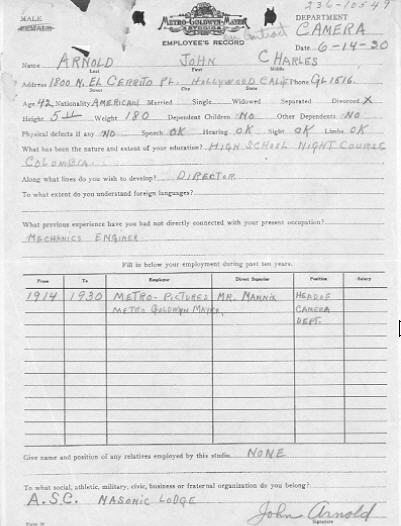 236-10549
MALE
FEMALE
METRO-GOLDWYN-MAYER
STUDIOS
on Contract
DEPARTMENT
CAMERA
EMPLOYEE'S RECORD
Date 6-14-30
Name ARNOLD JOHN CHARLES
Last First Middle
Address 1800 N. EL CERRITO PL. HOLLYWOOD CALIF Phone GL 1516.
Street City State
Age 42 Nationality AMERICAN Married Single Widowed Separated Divorced X
Height 5 Weight 180 Dependent Children NO Other Dependents NO
Physical defects if any NO Speech OK Hearing OK Sight OK Limbs OK
What has been the nature and extent of your education? HIGH SCHOOL NIGHT COURSE
COLOMBIA.
Along what lines do you wish to develop? DIRECTOR
To what extent do you understand foreign languages?
What previous experience have you had not directly connected with your present occupation?
MECHANICS ENGINER
Fill in below your employment during past ten years.
From To Employer Direct Superior Position Salary
1914 1930 METRO-PICTURES MR. MANNIX HEAD OF
METRO GOLDWYN MAYER, CAMERA
DEPT.
Give name and position of any relatives employed by this studio. NONE
To what social, athletic, military, civic, business or fraternal organization do you belong?
A.S.C. MASONIC LODGE
John Arnold
Signature